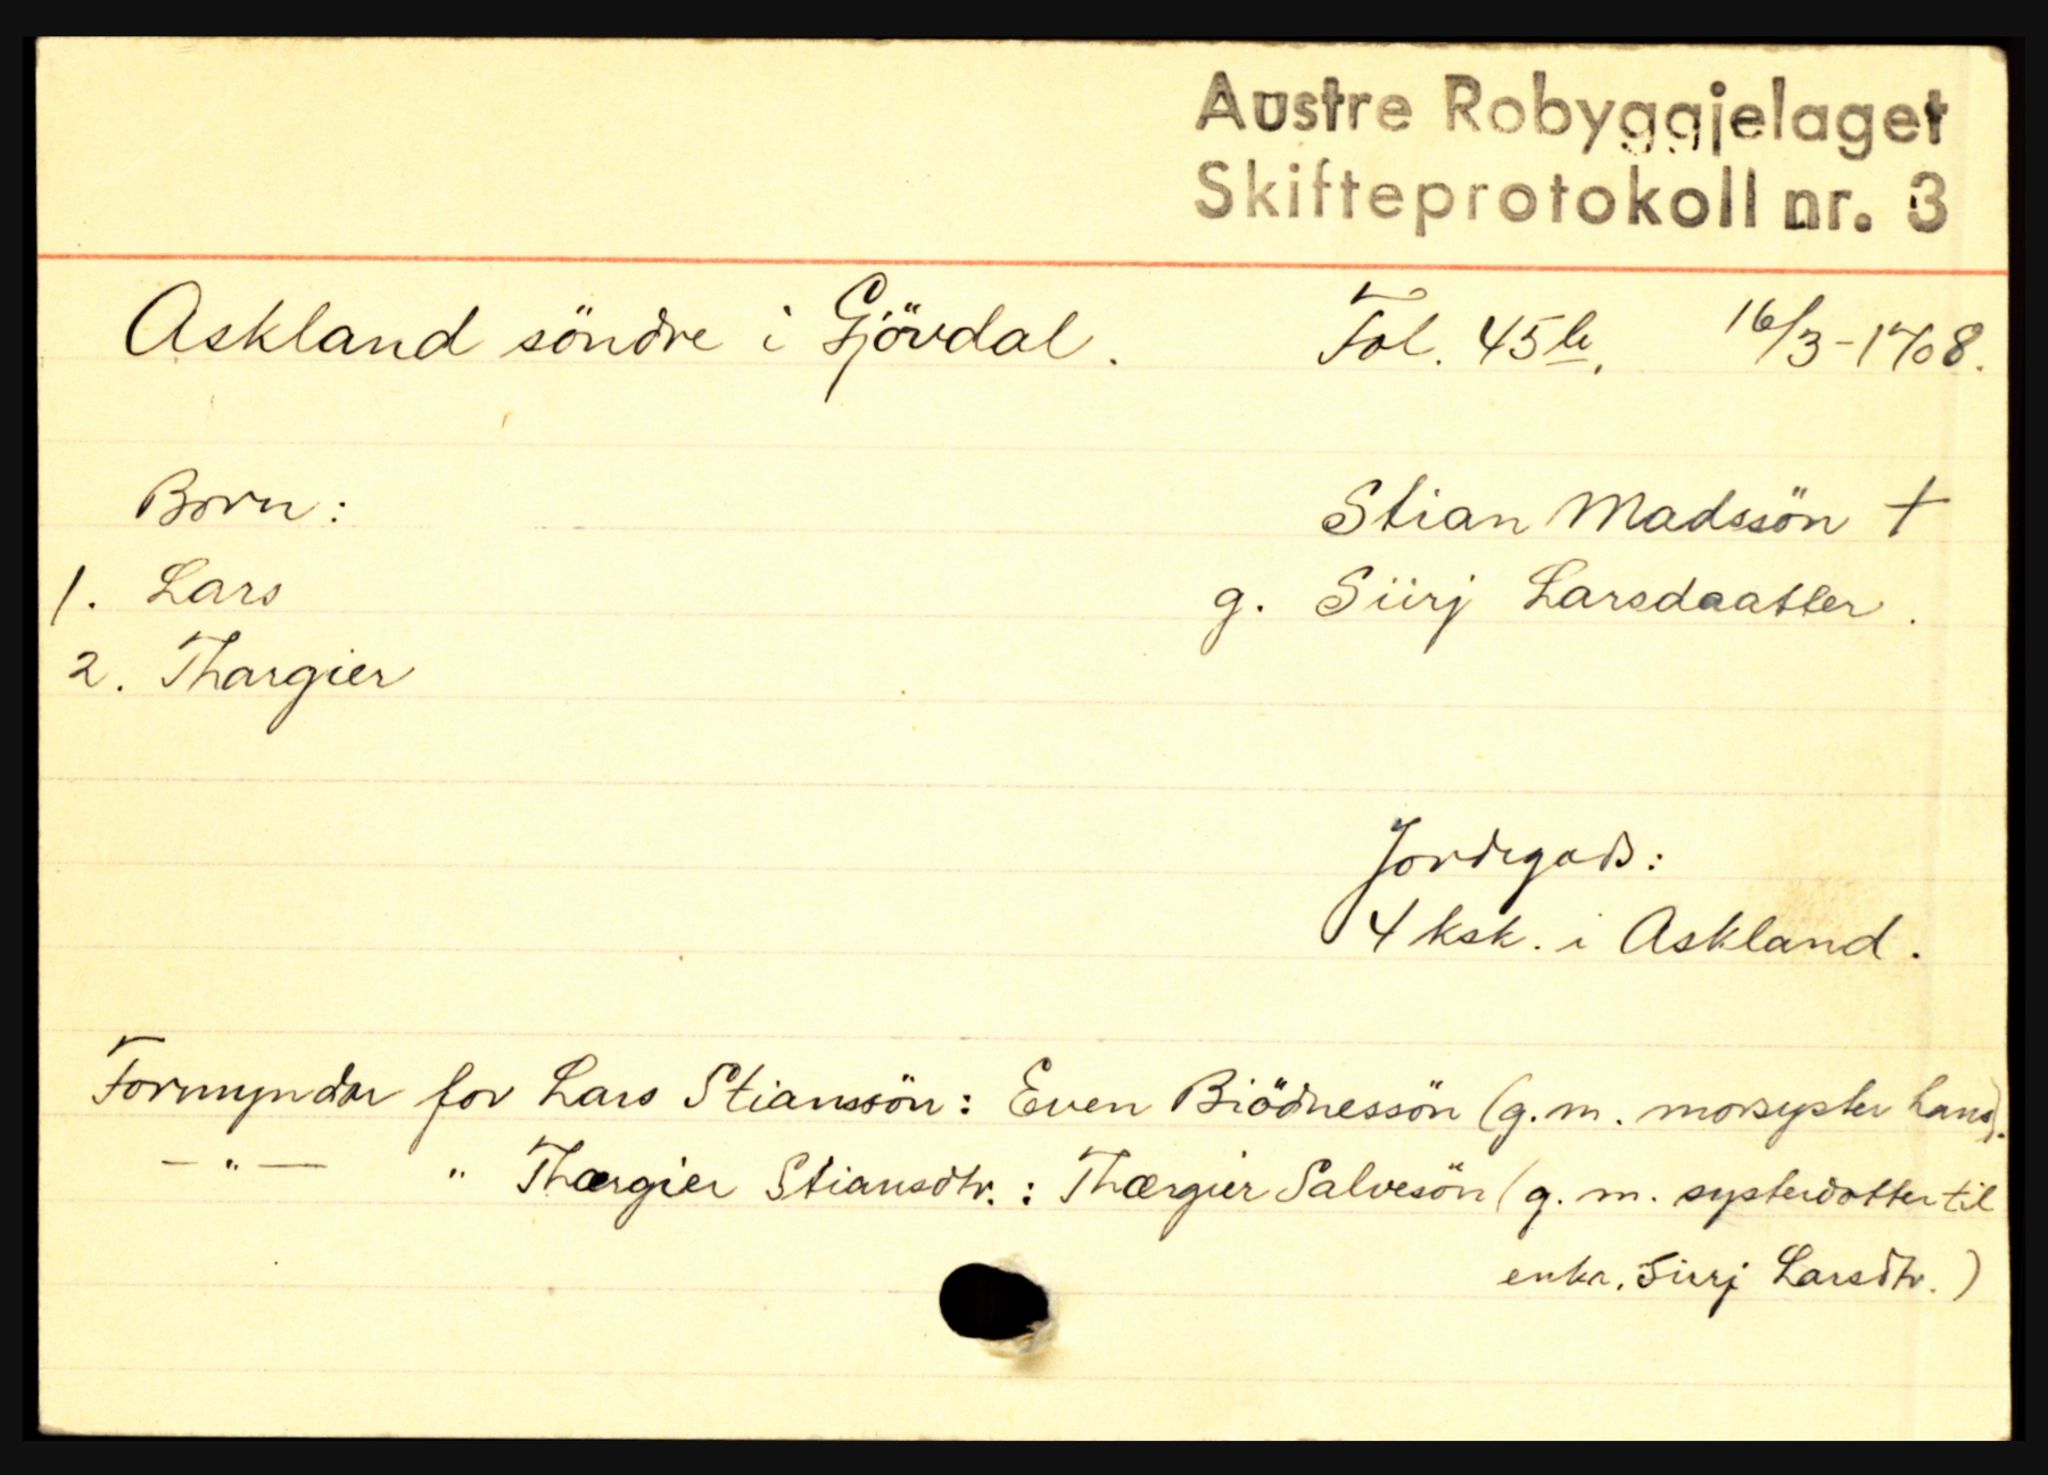 Austre Robyggjelaget
Skifteprotokoll nr. 3
Askland söndre i Gjövdal. Fol. 45b. 16/3-1708.
Born: Stian Madssön †
1. Lars g. Siirj Larsdaatter.
2. Thargier
Jordegods:
4 ksk. i Askland.
Formyndar for Lars Stianssön: Even Biödnessön (g. m. morsyster hans).
— " — " Thærgier Stiansdtr.: Thærgier Salvesön (g. m. systerdotter til
enka, Siirj Larsdtr.)